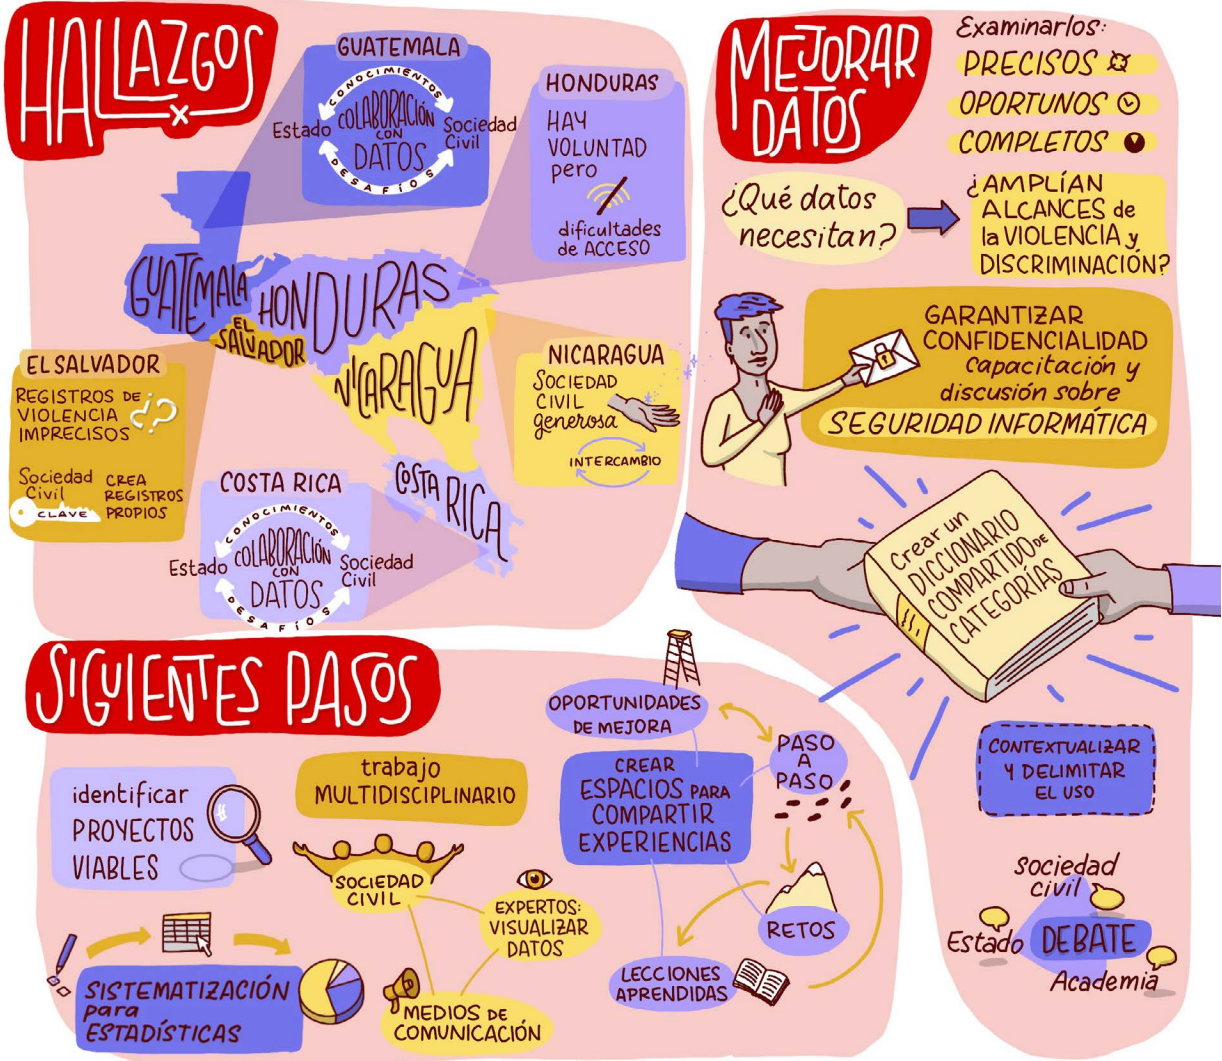 HALLAZGOS
GUATEMALA
CONOCIMIENTOS
Estado
COLABORACIÓN
CON
DATOS
Sociedad
Civil
DESAFÍOS
HONDURAS
HAY
VOLUNTAD
pero
dificultades
de ACCESO
GUATEMALA
HONDURAS
EL
SALVADOR
NICARAGUA
COSTA RICA
EL SALVADOR
REGISTROS DE
VIOLENCIA
IMPRECISOS
¿?
Sociedad
Civil
CLAVE
CREA
REGISTROS
PROPIOS
NICARAGUA
SOCIEDAD
CIVIL
generosa
INTERCAMBIO
COSTA RICA
CONOCIMIENTOS
Estado
COLABORACIÓN
CON
DATOS
Sociedad
Civil
DESAFÍOS
MEJORAR
DATOS
Examinarlos:
PRECISOS
OPORTUNOS
COMPLETOS
¿Qué datos
necesitan?
¿AMPLÍAN
ALCANCES de
la VIOLENCIA y
DISCRIMINACIÓN?
GARANTIZAR
CONFIDENCIALIDAD
capacitación y
discusión sobre
SEGURIDAD INFORMÁTICA
Crear un
DICCIONARIO
COMPARTIDO DE
CATEGORÍAS
CONTEXTUALIZAR
Y DELIMITAR
EL USO
Sociedad
civil
Estado
DEBATE
Academia
SIGUIENTES PASOS
identificar
PROYECTOS
VIABLES
trabajo
MULTIDISCIPLINARIO
SOCIEDAD
CIVIL
EXPERTOS:
VISUALIZAR
DATOS
MEDIOS DE
COMUNICACIÓN
SISTEMATIZACIÓN
para
ESTADÍSTICAS
OPORTUNIDADES
DE MEJORA
CREAR
ESPACIOS PARA
COMPARTIR
EXPERIENCIAS
PASO
A
PASO
RETOS
LECCIONES
APRENDIDAS